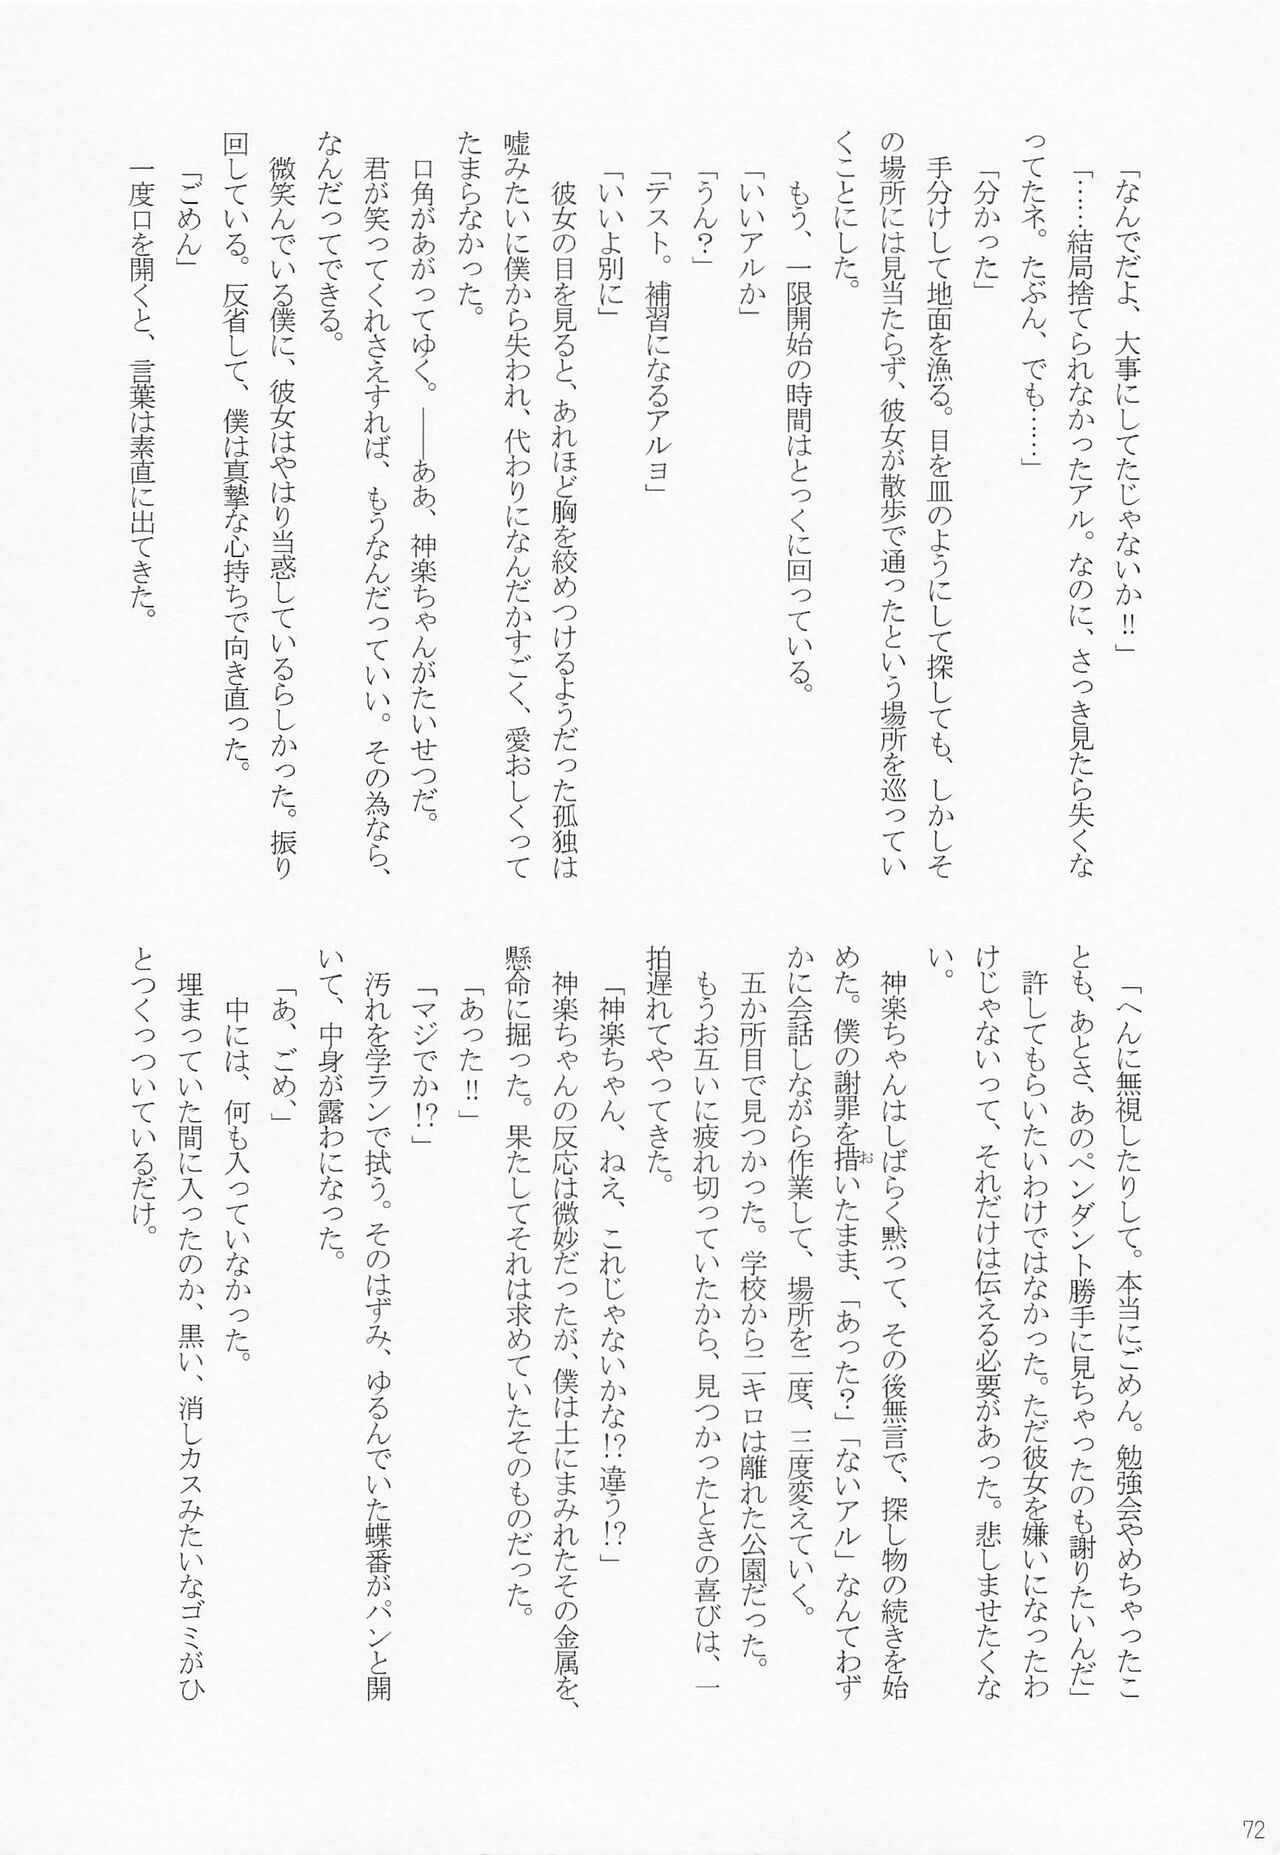 「なんでだよ、大事にしてたじゃないか!!」
「……結局捨てられなかったアル。なのに、さっき見たら失くな
ってたネ。たぶん、でも……」
「分かった」
手分けして地面を漁る。目を皿のようにして探しても、しかしそ
の場所には見当たらず、彼女が散歩で通ったという場所を巡ってい
くことにした。
もう、一限開始の時間はとっくに回っている。
「いいアルか」
「うん?」
「テスト。補習になるアルヨ」
「いいよ別に」
彼女の目を見ると、あれほど胸を絞めつけるようだった孤独は
嘘みたいに僕から失われ、代わりになんだかすごく、愛おしくって
たまらなかった。
口角があがってゆく。――ああ、神楽ちゃんがたいせつだ。
君が笑ってくれさえすれば、もうなんだっていい。その為なら、
なんだってできる。
微笑んでいる僕に、彼女はやはり当惑しているらしかった。振り
回している。反省して、僕は真摯な心持ちで向き直った。
「ごめん」
一度口を開くと、言葉は素直に出てきた。
「へんに無視したりして。本当にごめん。勉強会やめちゃったこ
とも、あとさ、あのペンダント勝手に見ちゃったのも謝りたいんだ」
許してもらいたいわけではなかった。ただ彼女を嫌いになったわ
けじゃないって、それだけは伝える必要があった。悲しませたくな
い。
神楽ちゃんはしばらく黙って、その後無言で、探し物の続きを始
めた。僕の謝罪を措いたまま、「あった?」「ないアル」なんてわず
かに会話しながら作業して、場所を二度、三度変えていく。
五か所目で見つかった。学校から二キロは離れた公園だった。
もうお互いに疲れ切っていたから、見つかったときの喜びは、一
拍遅れてやってきた。
「神楽ちゃん、ねえ、これじゃないかな!?違う!?」
神楽ちゃんの反応は微妙だったが、僕は土にまみれたその金属を、
懸命に掘った。果たしてそれは求めていたそのものだった。
「あった!!」
「マジでか!?」
汚れを学ランで拭う。そのはずみ、ゆるんでいた蝶番がパンと開
いて、中身が露わになった。
「あ、ごめ、」
中には、何も入っていなかった。
埋まっていた間に入ったのか、黒い、消しカスみたいなゴミがひ
とつくっついているだけ。
お
72